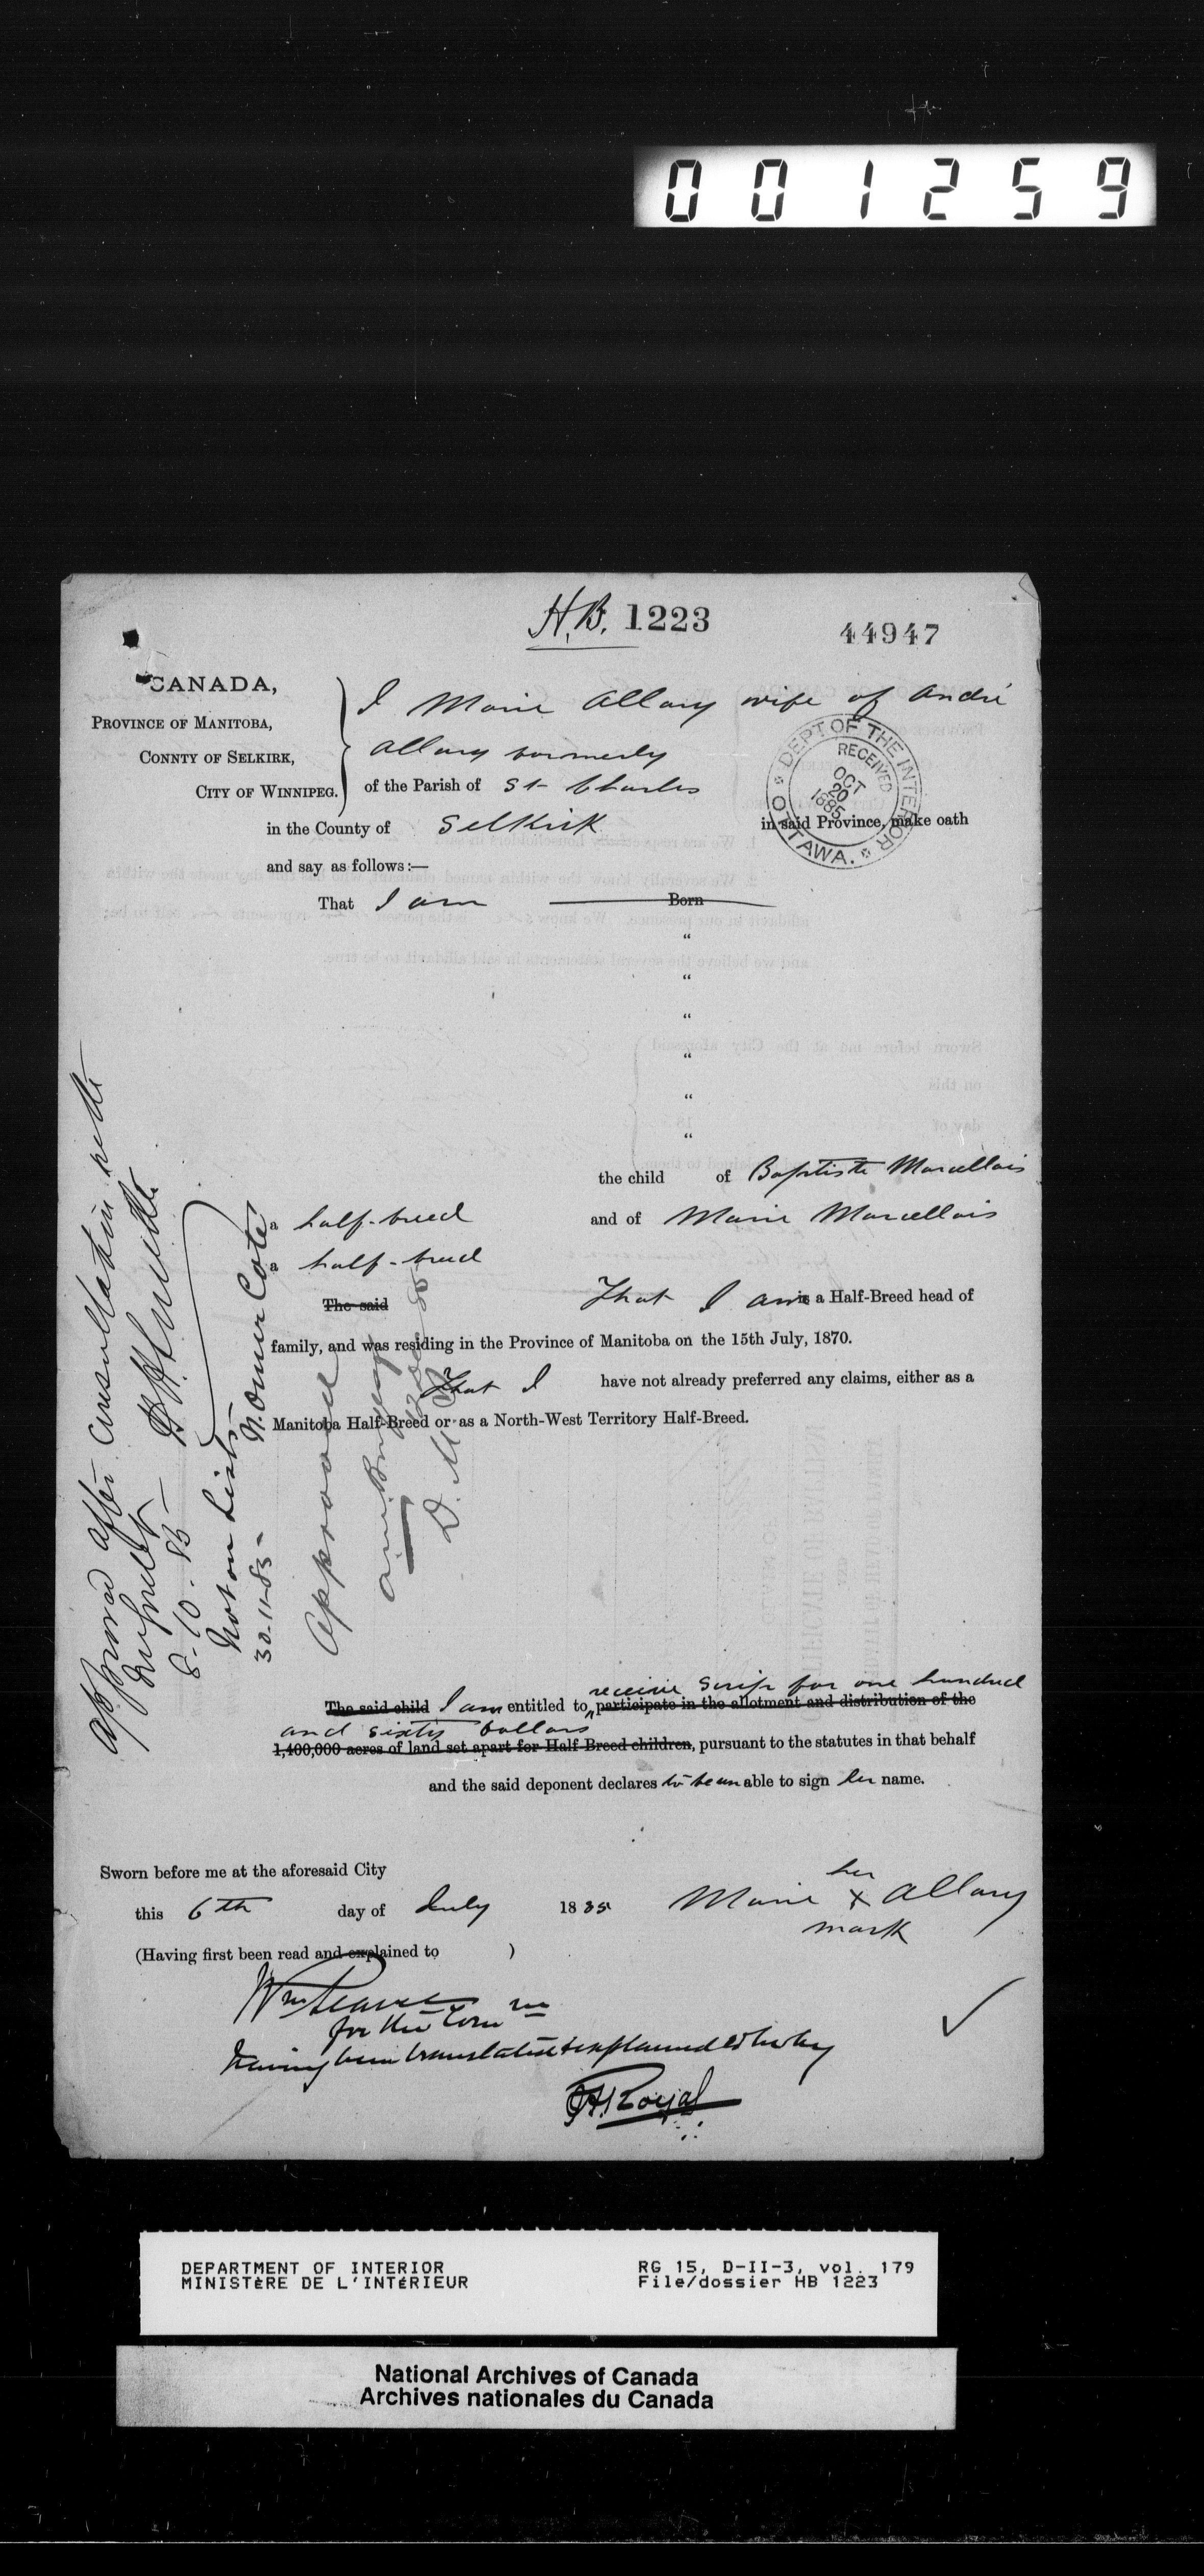 001259
H.B. 1223
44947
CANADA,
PROVINCE OF MANITOBA,
CONNTY OF SELKIRK,
CITY OF WINNIPEG.
I Marie Allary wife of André
Allary formerly
of the Parish of St Charles
in the County of Selkirk in said Province, make oath
DEPT OF THE INTERIOR
RECEIVED
OCT
20
1885
OTTAWA.
and say as follows:—
That I am Born
"
"
"
"
"
"
the child of Baptiste Marcellais
a half-breed and of Marie Marcellais
a half-breed
The said That I am is a Half-Breed head of
family, and was residing in the Province of Manitoba on the 15th July, 1870.
That I have not already preferred any claims, either as a
Manitoba Half-Breed or as a North-West Territory Half-Breed.
approved after consultation with
8-10-85
Not on List
30-11-85 - N. Omer Coté
Approved
receive scrip for one hundred
The said child I am entitled to participate in the allotment and distribution of the
and sixty dollars
1,400,000 acres of land set apart for Half-Breed children, pursuant to the statutes in that behalf
and the said deponent declares to be unable to sign her name.
Sworn before me at the aforesaid City
this 6th day of July 1885
her
Marie X Allary
mark
(Having first been read and explained to )
Wm Pearce
for the Com
having been translated & explained by
Royal
DEPARTMENT OF INTERIOR
MINISTÈRE DE L'INTÉRIEUR
RG 15, D-II-3, vol. 179
File/dossier HB 1223
National Archives of Canada
Archives nationales du Canada